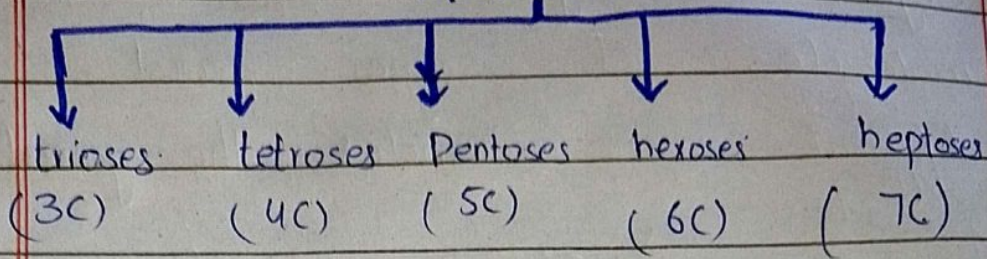 trioses tetroses Pentoses hexoses heptoses
(3C) (4C) (5C) (6C) (7C)